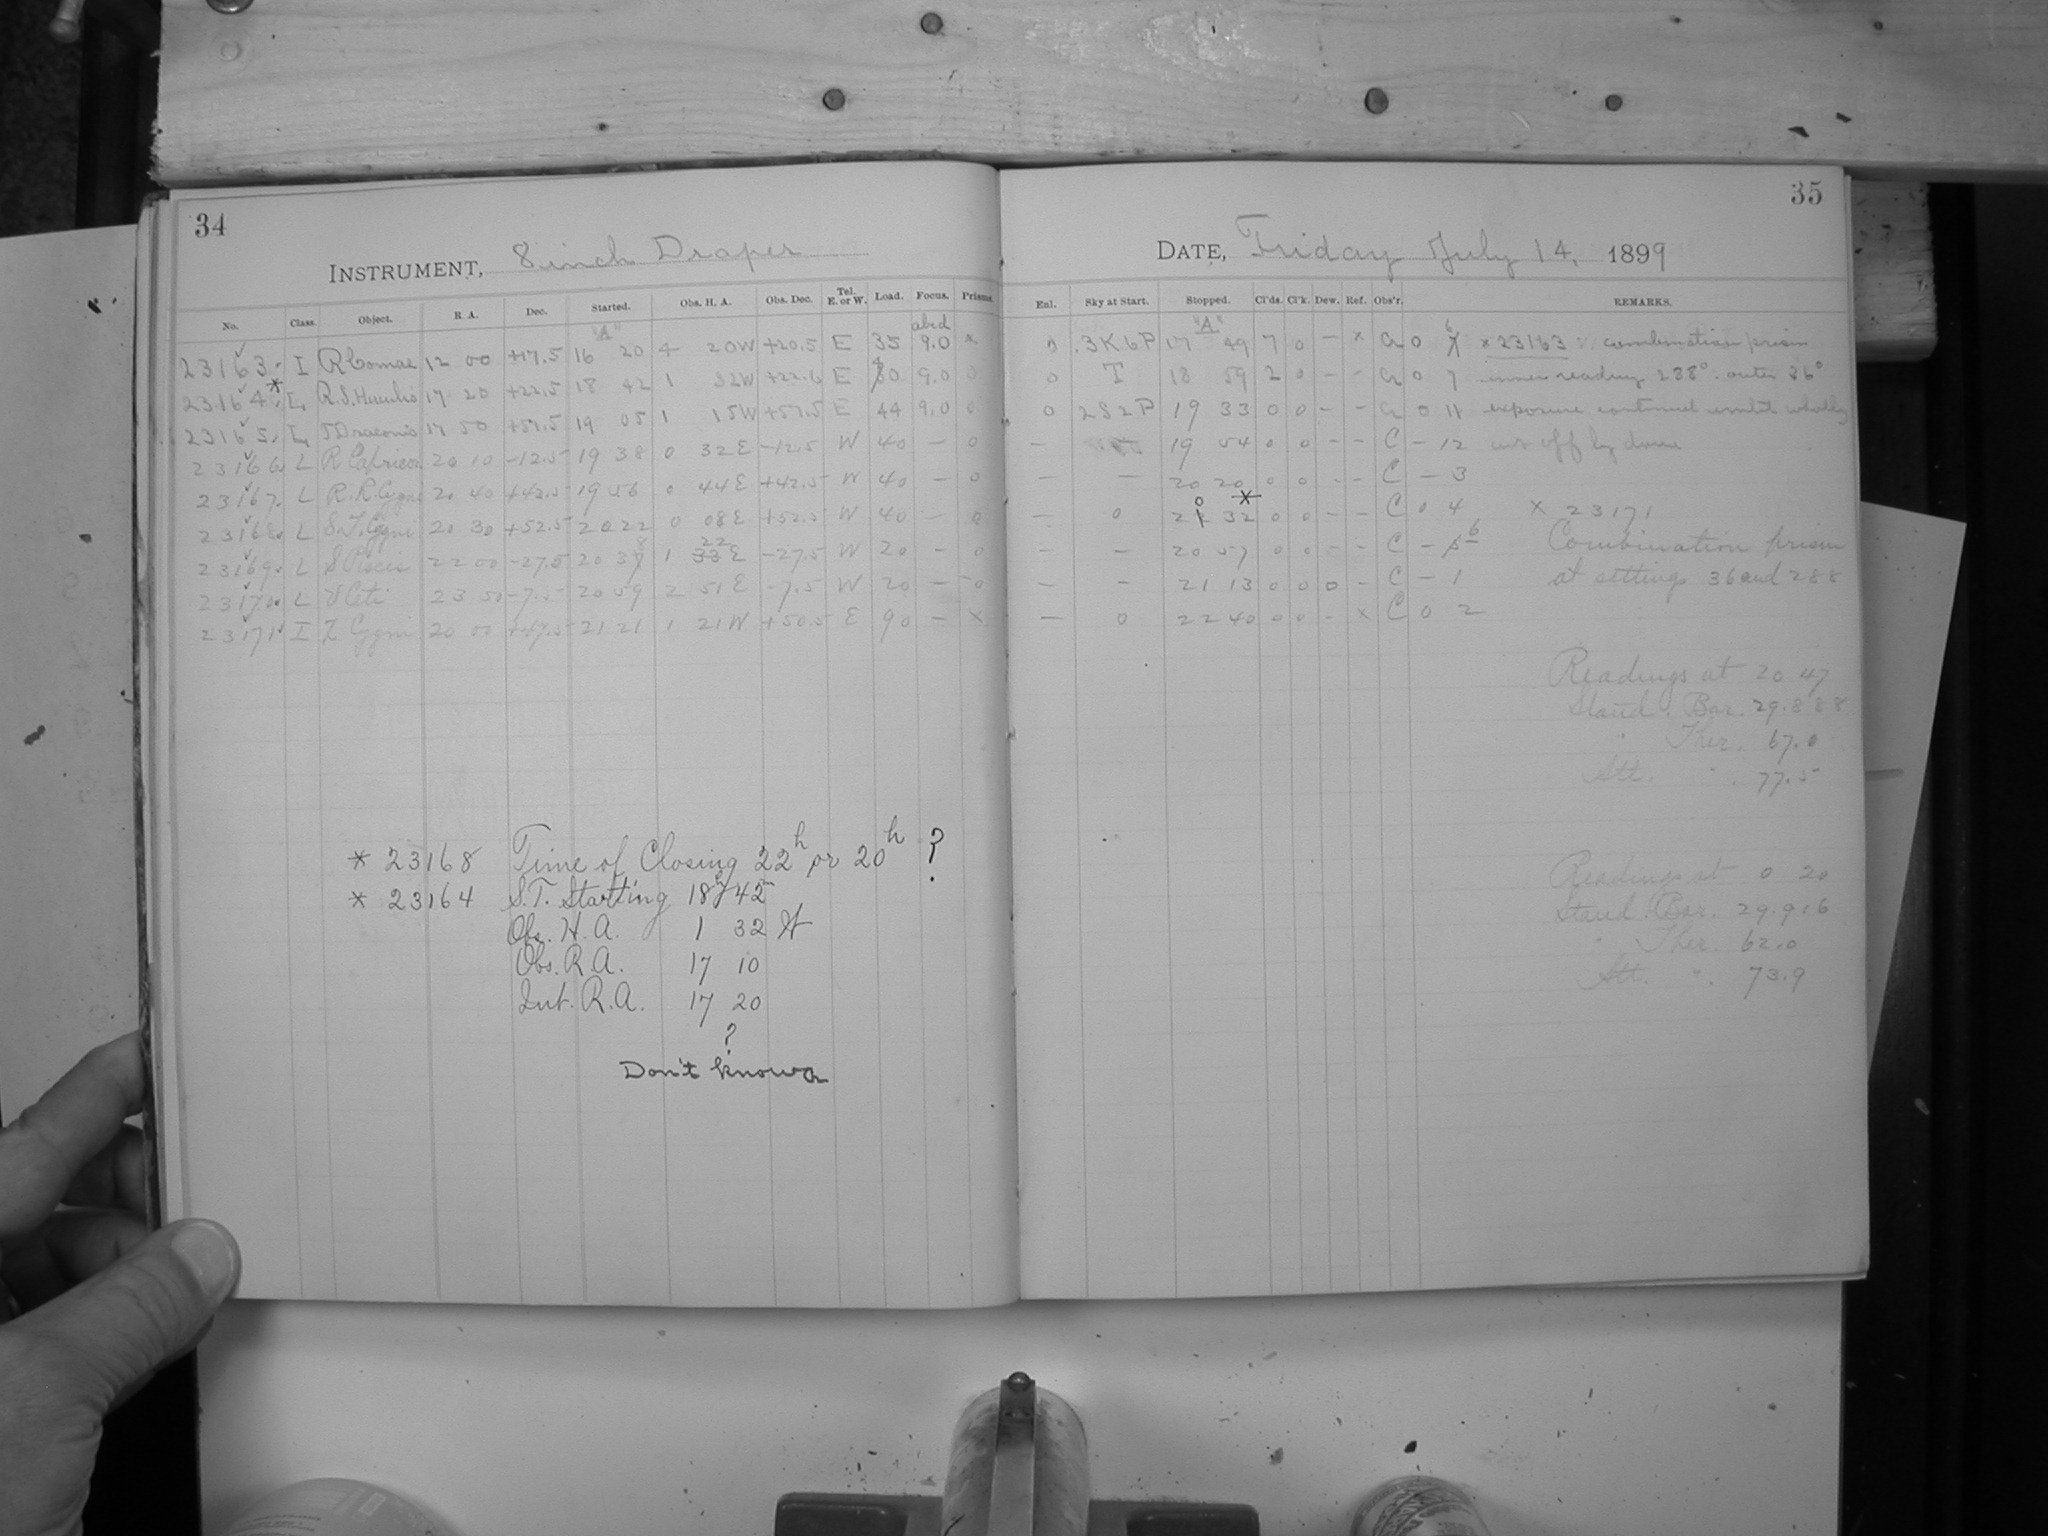 34
INSTRUMENT, 8 inch Draper
No. Class. Object. R. A. Dec. Started. Obs. H. A. Obs. Dec. Tel. E. or W. Load. Focus. Prisms.
"A" abcd
23163 I R Comae 12 00 +17.5 16 20 4 20W +20.5 E 35 9.0 x
23164* L R.S. Herculis 17 20 +22.5 18 42 1 32W +22.6 E 80 9.0 0
23165 L T Draconis 17 50 +57.5 19 05 1 15W +57.5 E 44 9.0 0
23166 L R Capricor 20 10 -12.5 19 38 0 32E -12.5 W 40 - 0
23167 L R.R. Cygni 20 40 +42.5 19 56 0 44E +42.5 W 40 - 0
23168 L S.T. Cygni 20 30 +52.5 20 22 0 08E +52.5 W 40 - 0
23169 L S Piscis 22 00 -27.5 20 38 1 22 E -27.5 W 20 - 0
23170 L V Ceti 23 50 -7.5 20 59 2 51E -7.5 W 20 - 0
23171 I Z Cygni 20 00 +47.5 21 21 1 21W +50.5 E 90 - x
* 23168 Time of Closing 22h or 20h ?
* 23164 S.T. Starting 18h 42m
Obs. H. A. 1 32 W
Obs. R. A. 17 10
Int. R. A. 17 20
?
Don't know
35
DATE, Friday July 14, 1899
Enl. Sky at Start. Stopped. Cl'ds. Cl'k. Dew. Ref. Obs'r. REMARKS.
"A"
0 .3K6P 17 49 7 0 - x a 0 6 x 23163 combination prism
0 T 18 59 2 0 - - a 0 7 inner reading 288° outer 36°
0 2S2P 19 33 0 0 - - a 0 11 exposure continued until wholly
- 19 54 0 0 - - C - 12 cut off by dome
- - 20 20 0 0 - - C - 3
- 0 20 32* 0 0 - - C 0 4 x 23171
- - 20 57 0 0 - - C - 6 Combination prism
- - 21 13 0 0 0 - C - 1 at settings 36 and 288
- 0 22 40 0 0 - x C 0 2
Readings at 20 47
Stand. Bar. 29.888
" Ther. 67.0
Att. " 77.5
Readings at 0 20
Stand. Bar. 29.916
" Ther. 62.0
Att. " 73.9